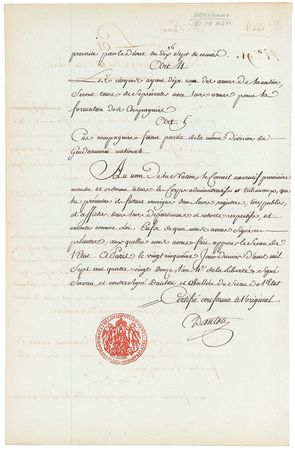 prescrire par le décret du dix sept de ce mois.
Art 4.
Les citoyens ayant déja eu des armes de
seront tenus de se présenter avec leurs armes pour la
formation des Compagnies
Art 5
Ces compagnies feront partie de la même division de
Gendarmerie nationale.
Au nom de la Nation, le Conseil exécutif provisoire
mande et ordonne à tous les Corps administratifs et tribunaux, que
les présentes ils fassent consigner dans leurs registres, lire, publier,
et afficher dans leurs départemens et ressorts respectifs, et
exécuter comme Loi. En foi de quoi nous avons signé ces
présentes, auxquelles nous avons fait apposer le sceau de
l'Etat. à Paris le vingt cinquième jour du mois d'aout mil
sept cent quatre vingt douze l'an 4e de la liberté. Signé
Servan et contresigné Danton. et scellées du sceau de l'Etat
Certifié conforme à l'original
Danton